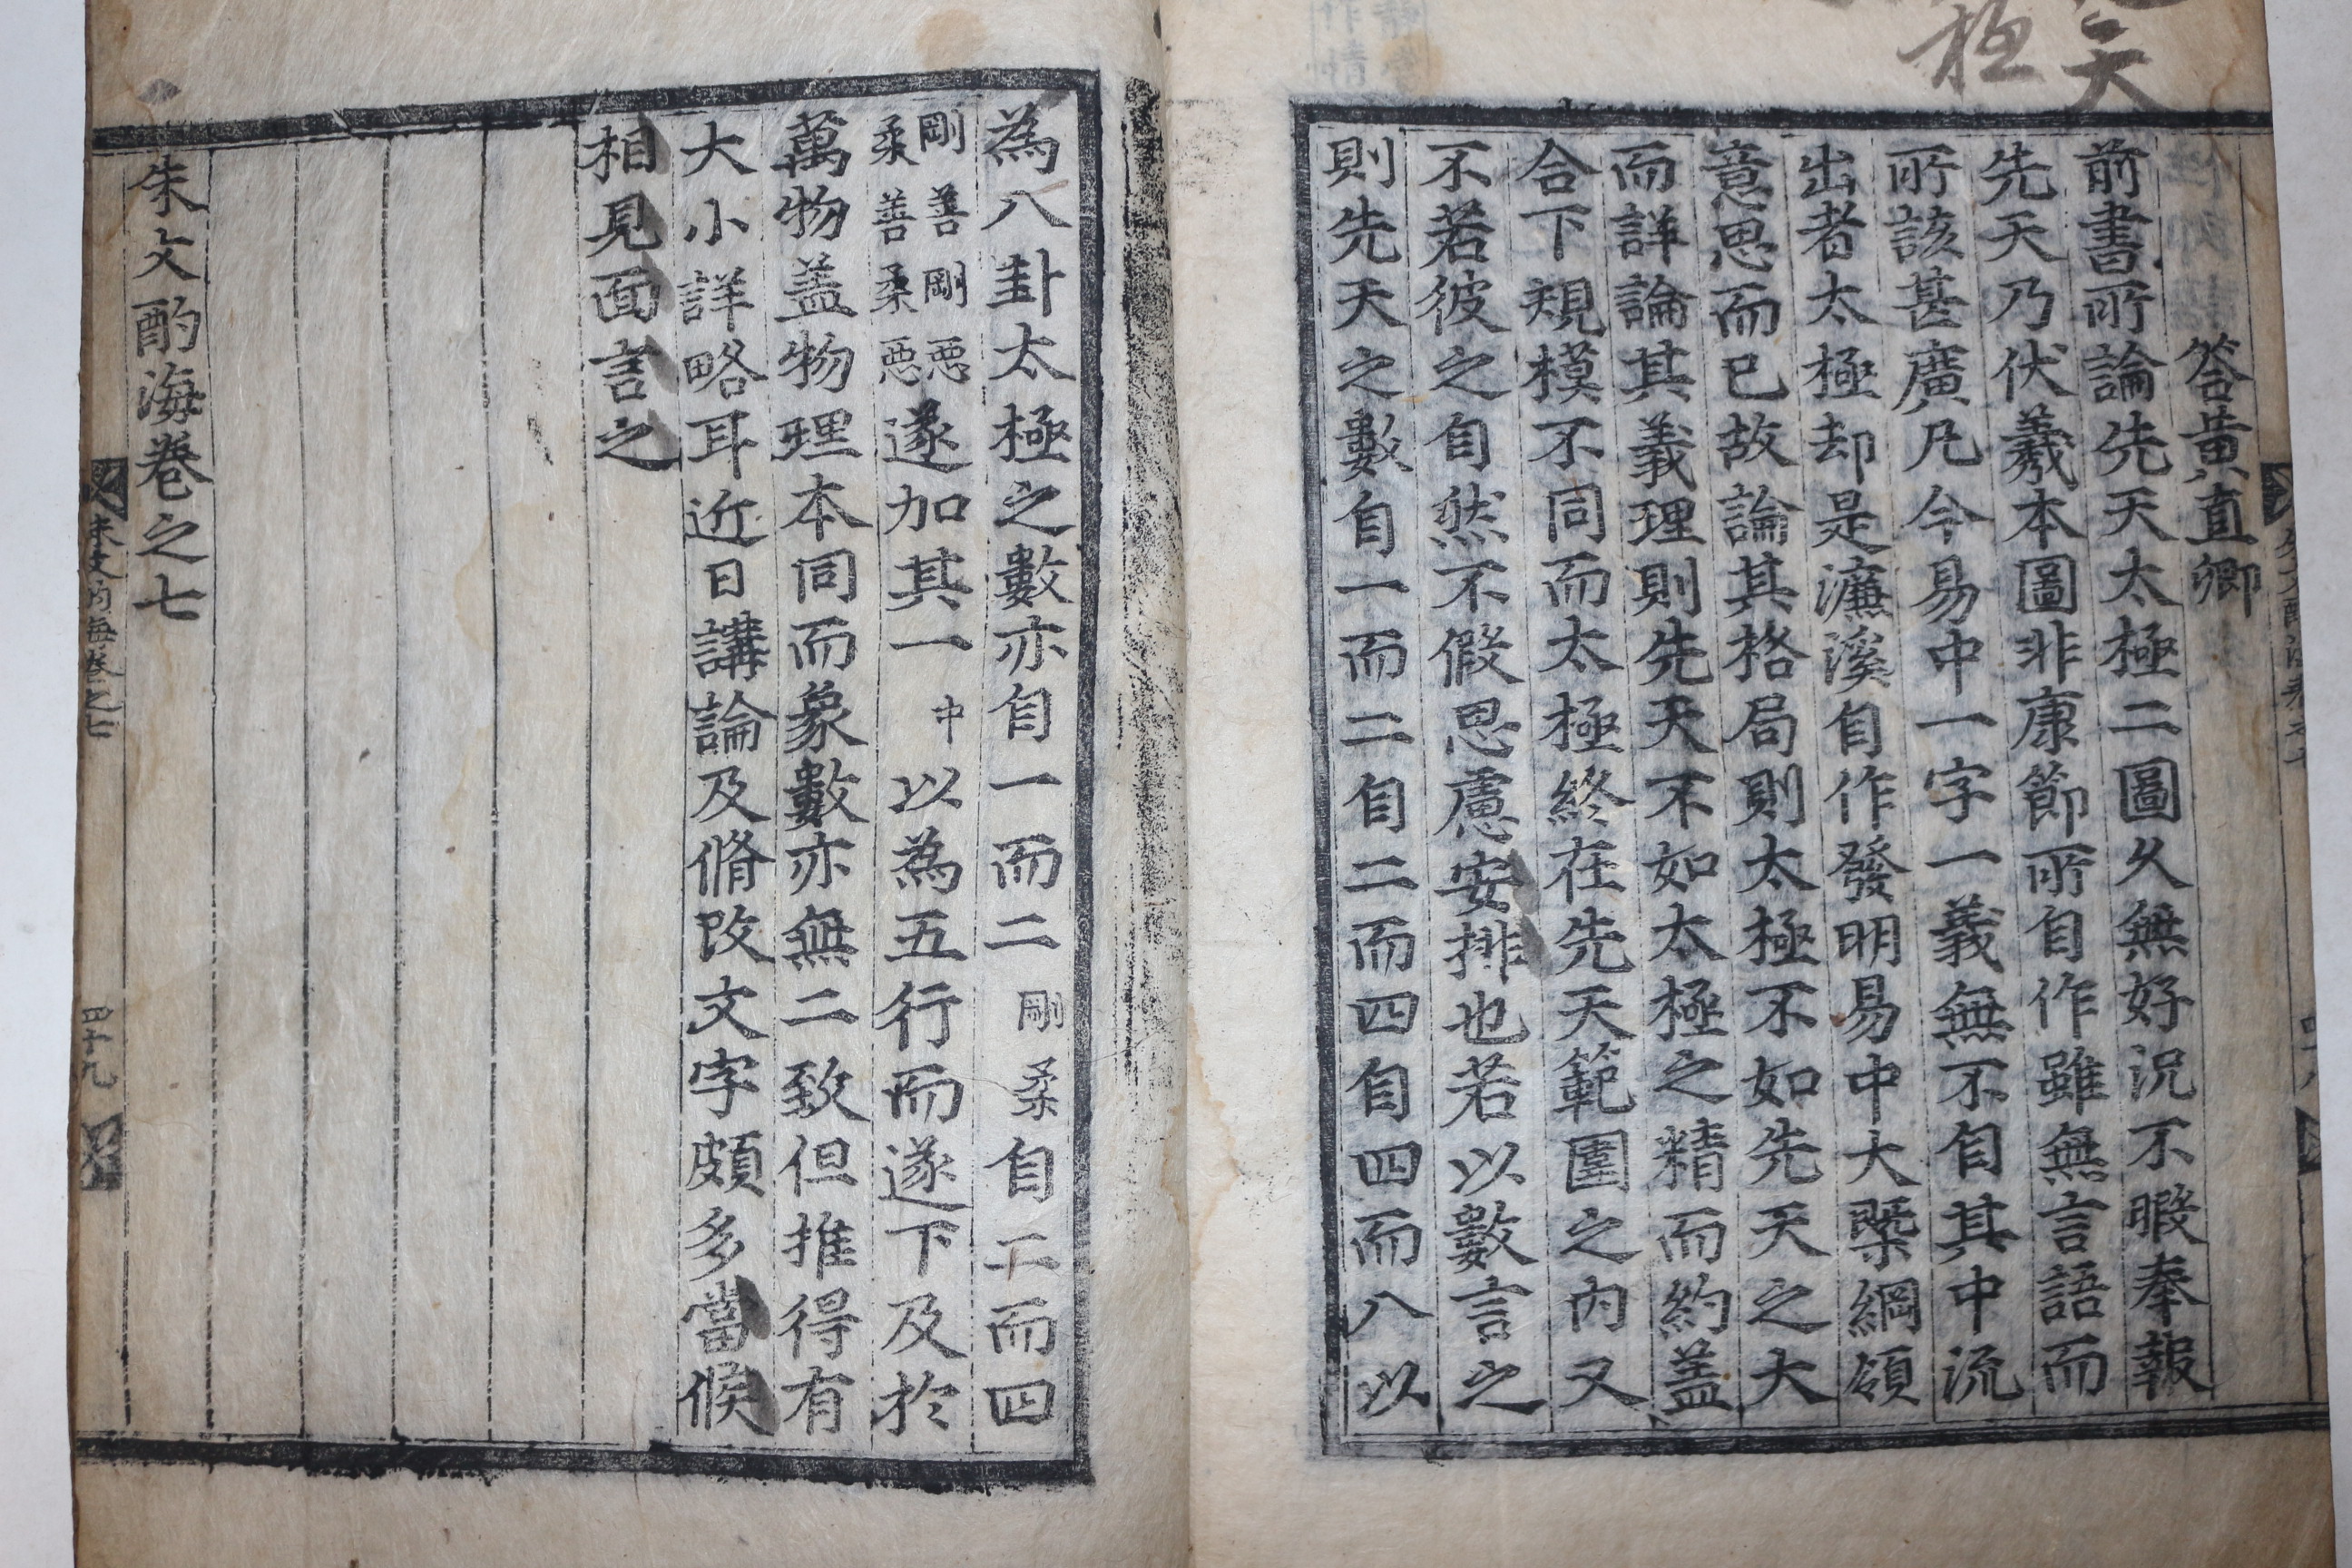 天
極
答黃直卿
前書所論先天太極二圖久無好況不暇奉報
先天乃伏羲本圖非康節所自作雖無言語而
所該甚廣凡今易中一字一義無不自其中流
出者太極却是濂溪自作發明易中大槩綱領
意思而已故論其格局則太極不如先天之大
而詳論其義理則先天不如太極之精而約盖
合下規模不同而太極終在先天範圍之內又
不若彼之自然不假思慮安排也若以數言之
則先天之數自一而二自二而四自四而八以
為八卦太極之數亦自一而二剛柔自二而四
剛善剛惡柔善柔惡遂加其一中以為五行而遂下及於
萬物盖物理本同而象數亦無二致但推得有
大小詳略耳近日講論及脩改文字頗多當候
相見面言之
朱文酌海卷之七
朱文酌海卷之七
四十九